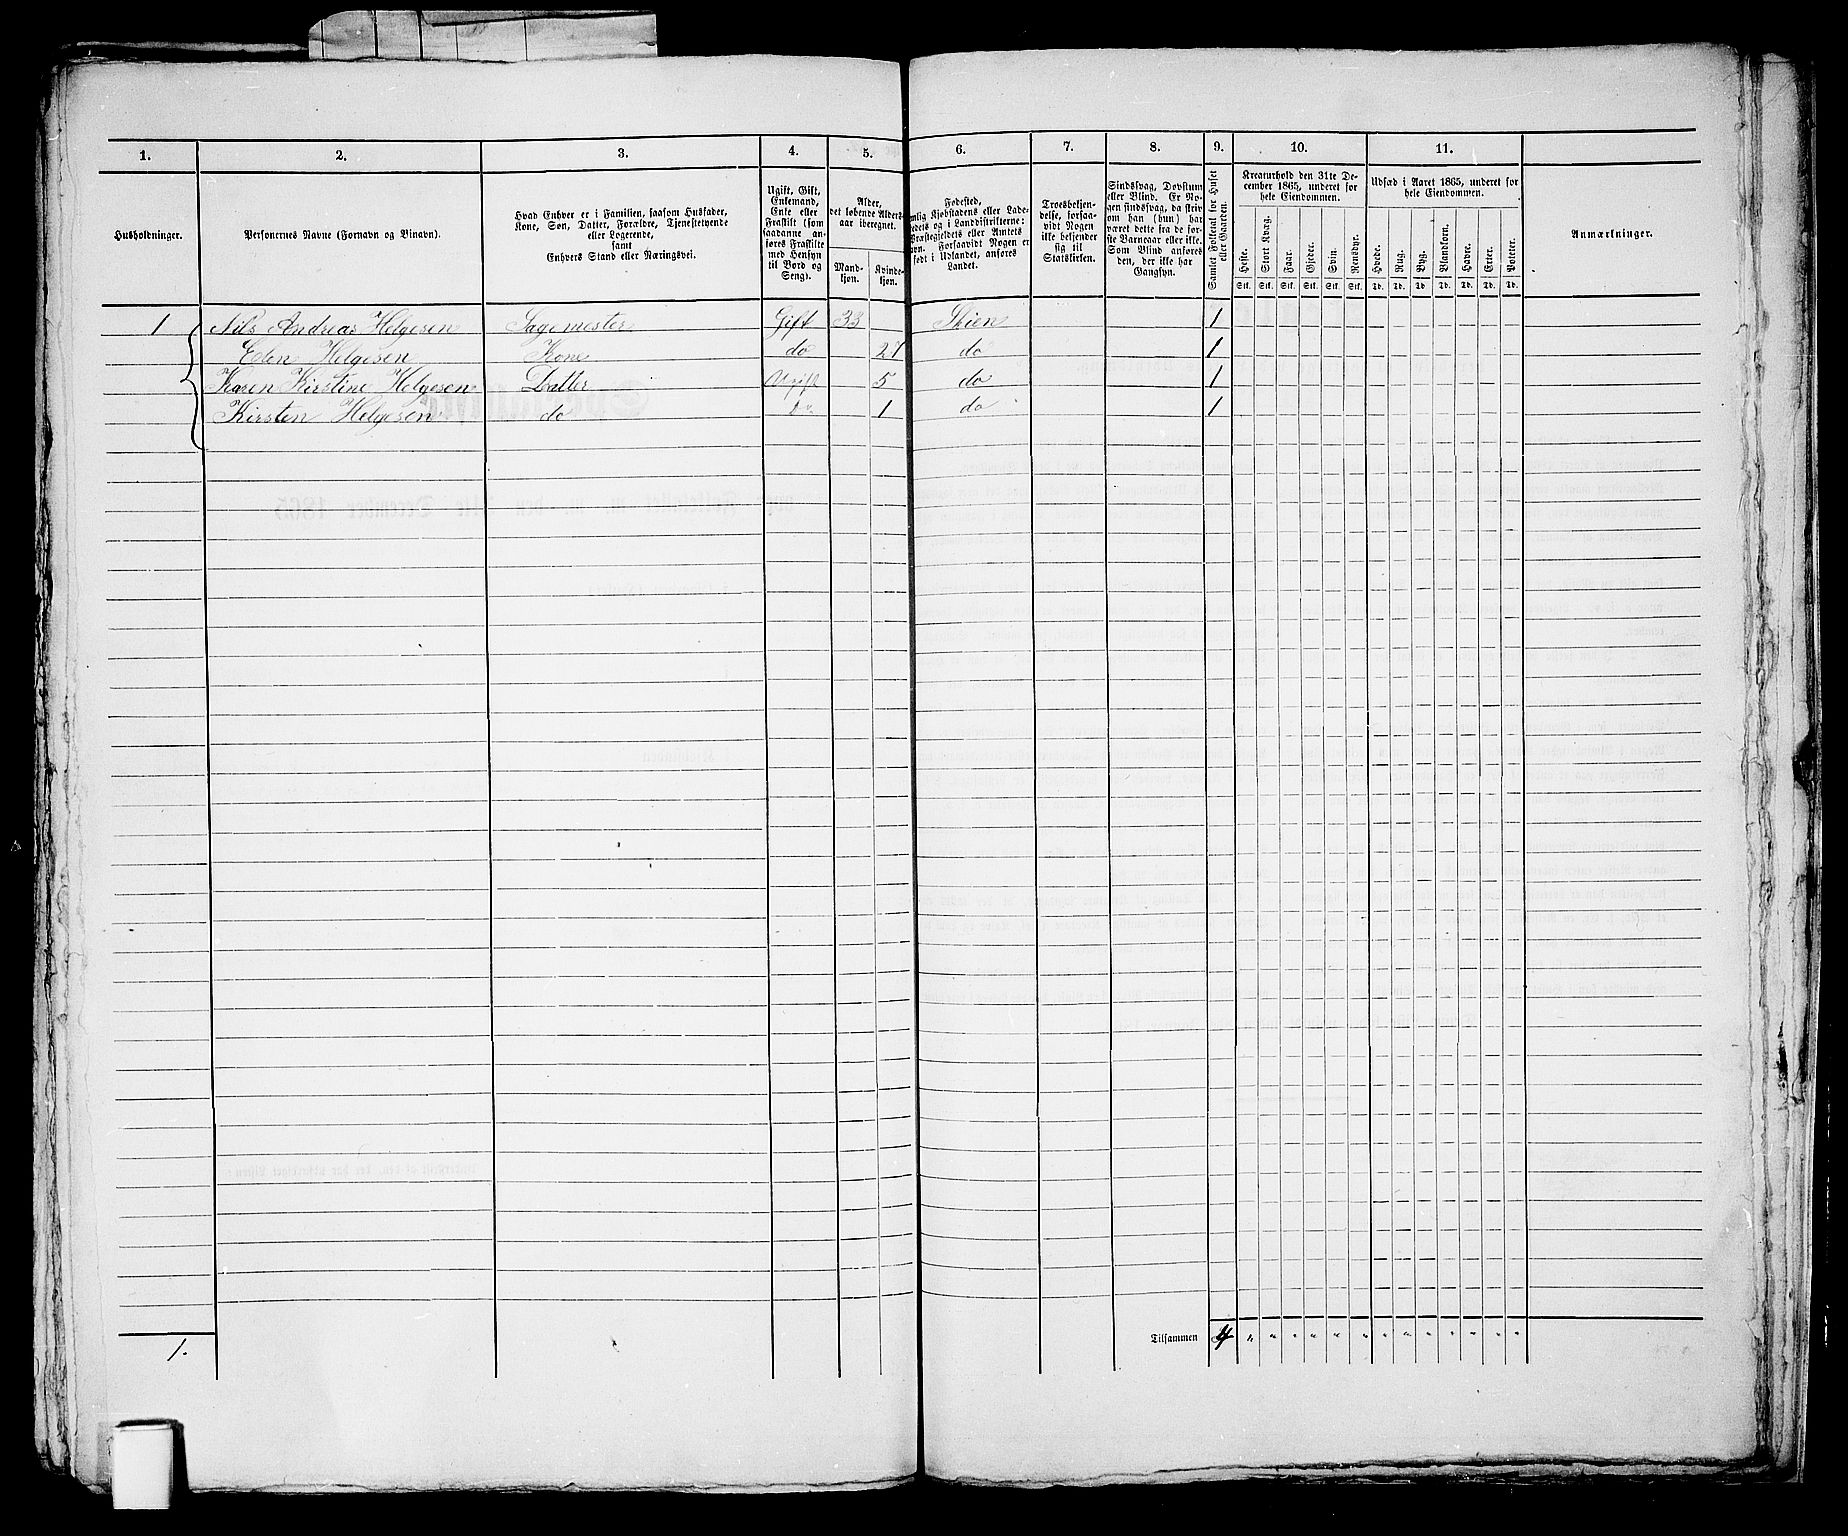 1. 2. 3. 4. 5. 6. 7. 8. 9. 10. 11.
Husholdninger.
Personernes Navne (Fornavn og Binavn).
Hvad Enhver er i Familien, saasom Husfader,
Kone, Søn, Datter, Forældre, Tjenestetyende
eller Logerende,
samt
Enhvers Stand eller Næringsvei.
Ugift, Gift,
Enkemand,
Enke eller
Fraskilt (som
saadanne an-
føres Fraskilte
med Hensyn
til Bord og
Seng).
Alder,
det løbende Alders-
aar iberegnet.
Mand-
kjøn.
Kvinde-
kjøn.
Fødested,
nlig Kjøbstadens eller Lade-
edets og i Landdistrikterne:
Præstegjeldets eller Amtets
vn. Forsaavidt Nogen er
født i Udlandet, anføres
Landet.
Troesbekjen-
delse, forsaa-
vidt Nogen
ikke bekjender
sig til
Statskirken.
Sindssvag, Døvstum
eller Blind. Er No-
gen sindssvag, da skriv
om han (hun) har
været dette fra de før-
ste Barneaar eller ikke.
Som Blind anføres
den, der ikke har
Gangsyn.
Samlet Folketal for Huset
eller Gaarden.
Kreaturhold den 31te De-
cember 1865, underet for
hele Eiendommen.
Heste. Stort Kvæg. Faar. Gjeder. Svin. Rensdyr.
Stk. Stk. Stk. Stk. Stk. Stk.
Udsæd i Aaret 1865, underet for
hele Eiendommen.
Hvede. Rug. Byg. Blandkorn. Havre. Erter. Poteter.
Td. Td. Td. Td. Td. Td. Td.
Anmærkninger.
1 Nils Andreas Helgesen Sagemester Gift 33 Skien 1
Elen Helgesen Kone do 27 do 1
Karen Kirstine Helgesen Datter Ugift 5 do 1
Kirsten Helgesen do do 1 do 1
Tilsammen 4 " " " " " " " " " " " " "
1.